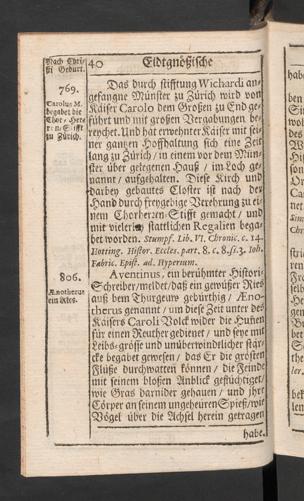 Nach Chri-
sti Geburt.
40
Eidtgnößische
769.
Carolus M.
begabet die
Chor-Here
ren-Stifft
zu Zürich.
Das durch stifftung Wichardi an-
gefangne Münster zu Zürich wird von
Kaiser Carolo dem Großen zu End ge-
führt und mit großen Vergabungen be-
reychet. Und hat erwehnter Kaiser mit sei-
ner gantzen Hoffhaltung sich eine Zeit
lang zu Zürich/ in einem vor dem Mün-
ster über gelegenen Hauß / im Loch ge-
nannt / aufgehalten. Diese Kirch und
darbey gebautes Closter ist nach der
Hand durch freygebige Verehrung zu ei-
nem Chorherzen-Stifft gemacht / und
mit vielen stattlichen Regalien bega-
bet worden. Stumpf. Lib. VI. Chronic. c. 14.
Hotting. Histor. Eccles. part. 8. c. 8. Ioh.
Fabric. Epist. ad. Hyperum.
806.
Ænotherus
ein Ries.
Aventinus, ein berühmter Histori-
Schreiber/meldet/daß ein gewüßer Ries
auß dem Thurgeuw gebürthig/ ÆEno-
therus genannt / um diese Zeit unter des
Kaisers Caroli Volck wider die Hunen
für einen Reuther gedienet / und seye mit
Leibs-grösse und unüberwindlicher stär-
cke begabet gewesen / das Er die grösten
Flüße durchwatten können / die Feinde
mit seinem bloßen Anblick geflüchtiget/
wie Gras darnider gehauen / und ihre
Cörper an seinem ungeheüren Spieß/wie
Vögel über die Achsel herein getragen
habe.